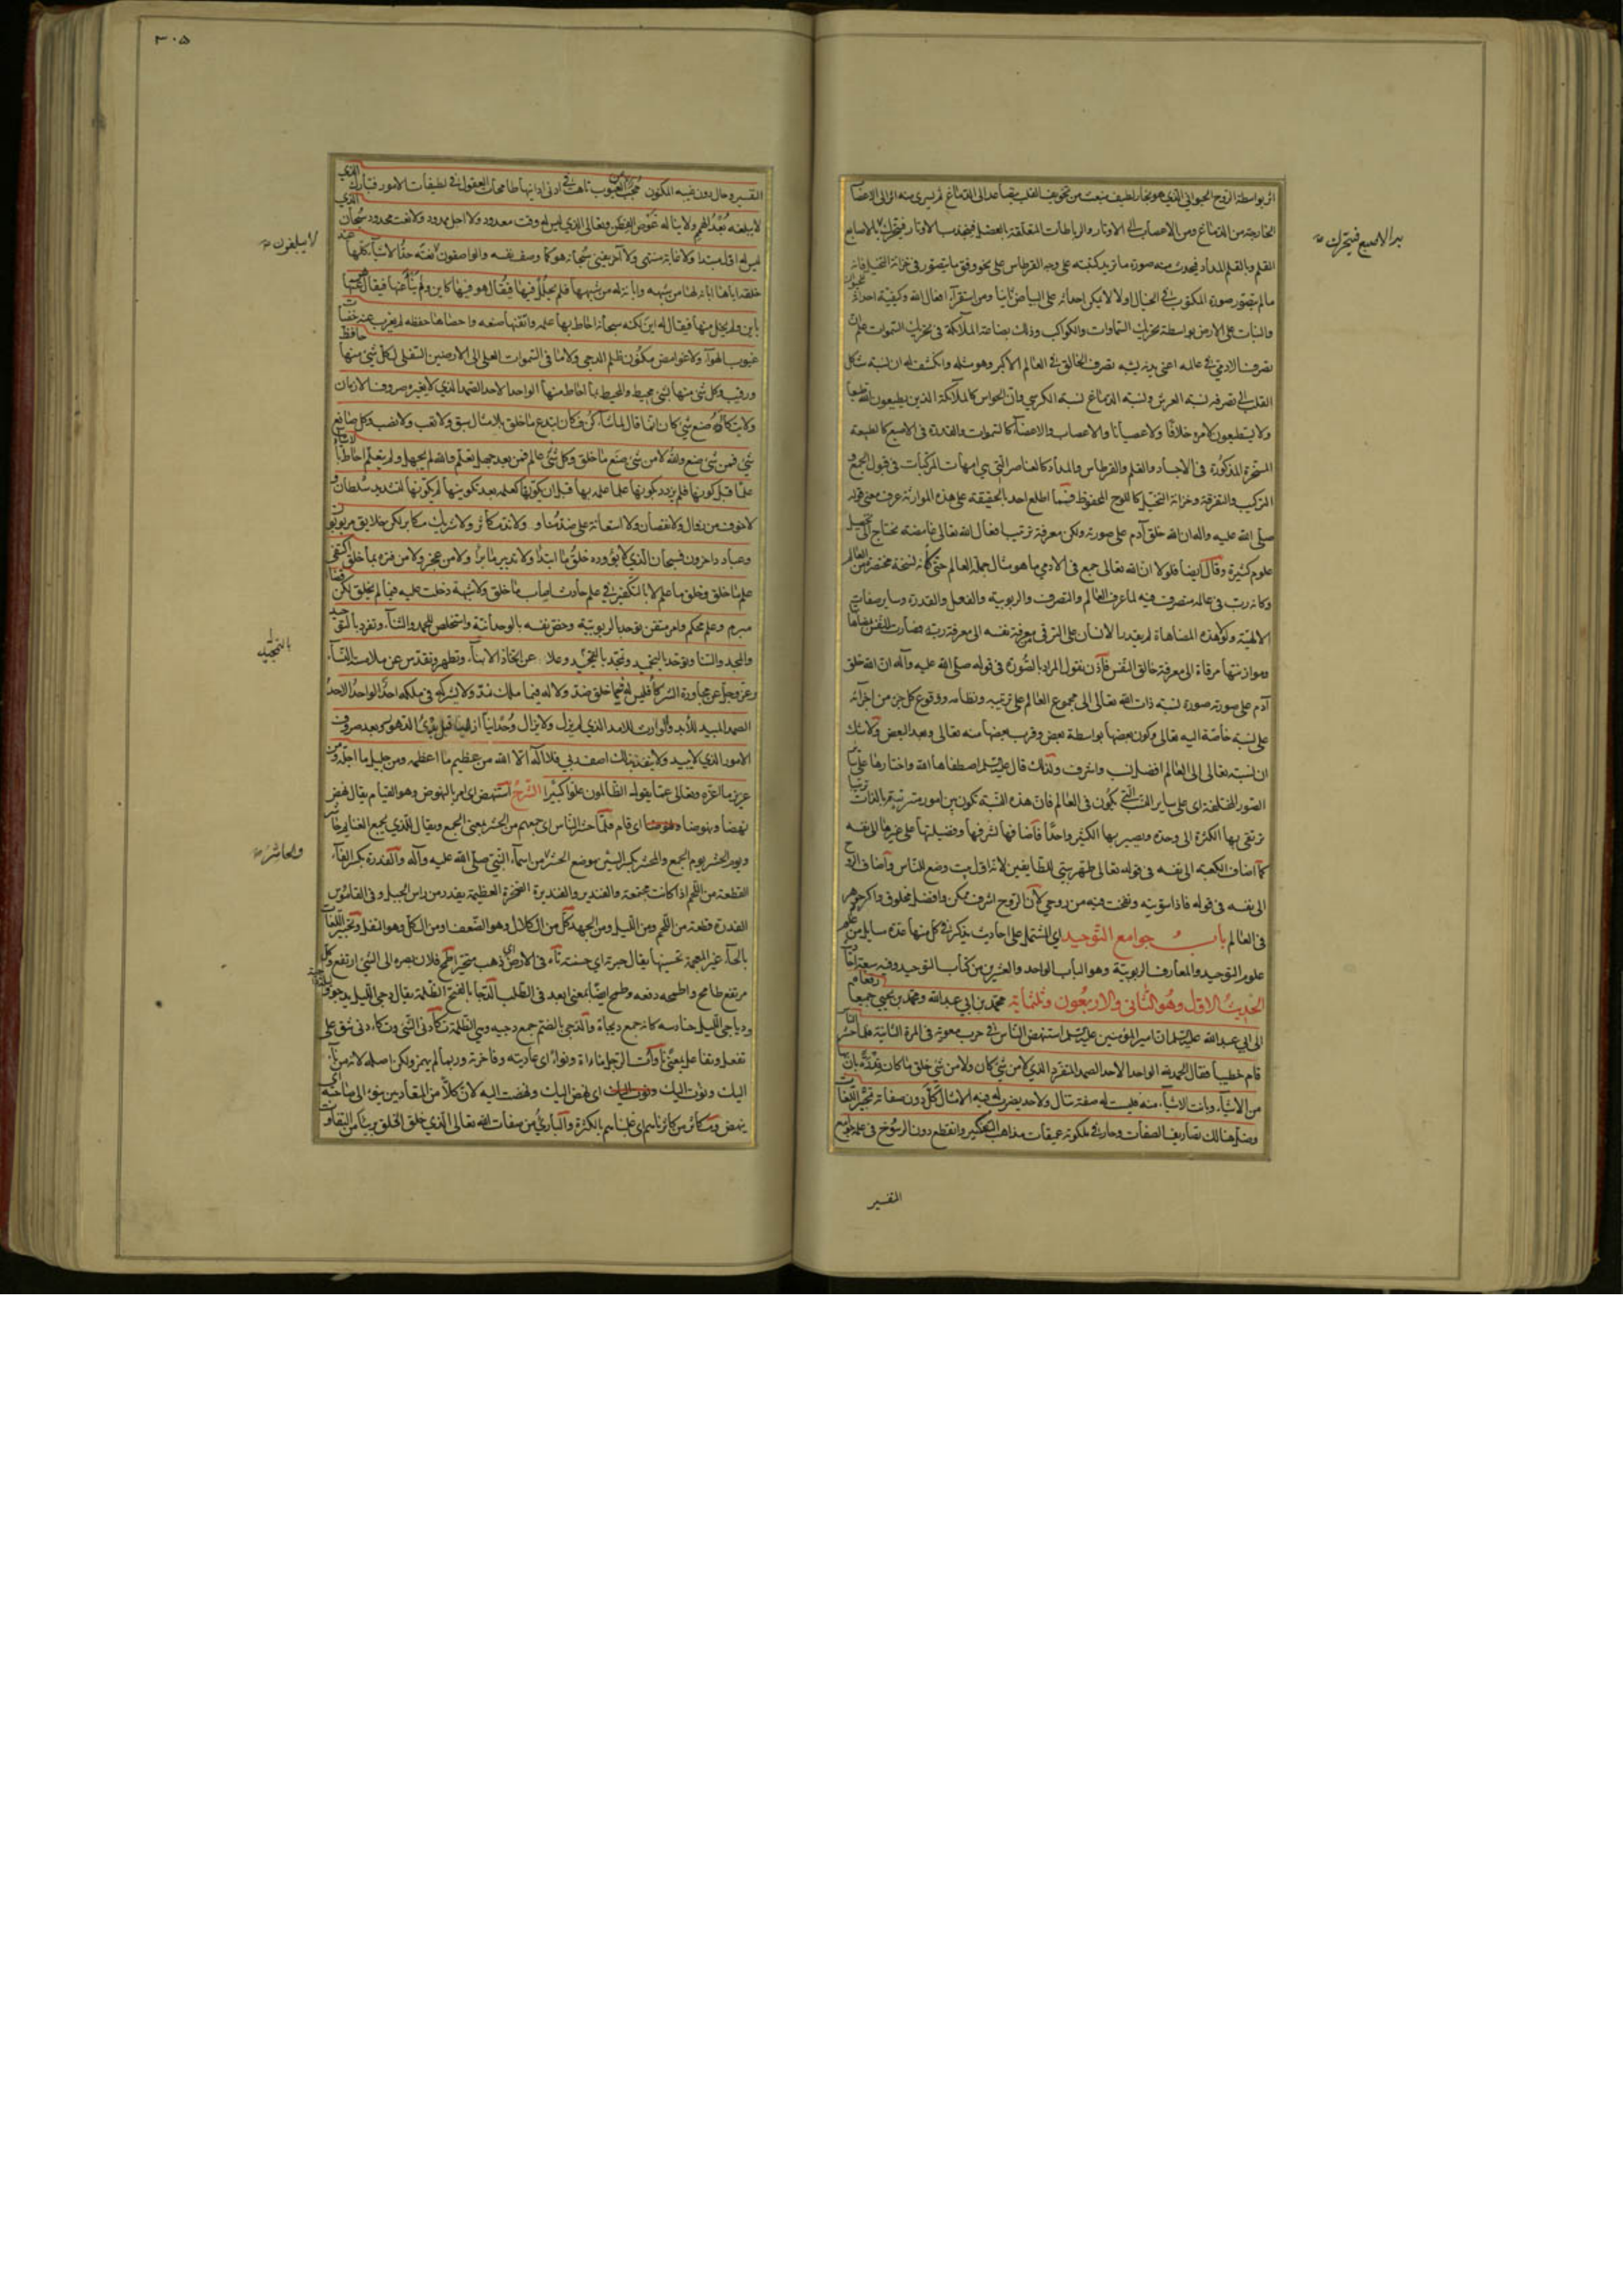 اثر بواسطة الروح الحيواني الذي هو بخار لطيف ينبعث من تجويف القلب يتصاعد الى الدماغ ثم يسرى منه اثر الى الاعضا
الخارجة من الدماغ ومن الاعصاب الى الاوتار والرباطات المتعلقة بالعضل فينجذب الاوتار فيتحرك بها الاصابع
القلم وبالقلم المداد فيحدث منه صورة ما يريد كتبته على وجه القرطاس على نحو وفق ما يتصور في خزانة التخيل فانه
ما لم يتصور صورة المكتوب في الخيال اولا لا يمكن احداثه على البياض ثانيا ومن استقرأ افعال الله وكيفية احداثه
والنبات على الارض بواسطة تحريك السماوات والكواكب وذلك بطاعة الملائكة في تحريك السموات علم ان
تصرف الادمي في عالمه اعنى بدنه يشبه تصرف الخالق في العالم الاكبر وهو مثله وانكشف له ان نسبة شكل
القلب الى تصرفه نسبة العرش ونسبة الدماغ نسبة الكرسي وان الحواس كالملائكة الذين يطيعون الله طبعا
ولا يستطيعون لامره خلافا ولا عصيانا والاعصاب والاعضاء كالسموات والقدرة في الاصبع كالطبيعة
المسخرة المذكورة في الاجساد والقلم والقرطاس والمداد كالعناصر التي هي امهات المركبات في قبول الجمع و
التركيب والتفرقة وخزانة التخيل كاللوح المحفوظ فمهما اطلع احد بالحقيقة على هذه الموازنة عرف معنى قوله
صلى الله عليه واله ان الله خلق آدم على صورته ولكن معرفة ترتيب افعال الله تعالى غامضة يحتاج الى تحصيل
علوم كثيرة وقال ايضا فلولا ان الله تعالى جمع في الادمي ما هو مثال جملة العالم حتى كأنه نسخة مختصرة من العالم
وكانه رب في عالمه متصرف فيه لما عرف العالم والتصرف والربوبية والفعل والقدرة وساير صفات
الالهية ولولا هذه المضاهاة لم يقدر الانسان على الترقي من معرفة نفسه الى معرفة ربه فصارت النفس بمضاهاتها
وموازنتها مرقاة الى معرفة خالق النفس فاذن نقول المراد بالصورة في قوله صلى الله عليه وآله ان الله خلق
آدم على صورته صورة نسبة ذات الله تعالى الى مجموع العالم على ترتيبه ونظامه ووقوع كل جزء من اجزائه
على نسبة خاصة اليه تعالى وكون بعضها بواسطة بعض وقرب بعضها منه تعالى وبعد البعض ولا شك
ان نسبته تعالى الى العالم افضل نسب واشرف ولذلك قال عليه السلم اصطفاها الله واختارها على ساير
الصور المختلفة اى على ساير النسب التي تكون في العالم فان هذه النسبة تكون بين امور مترتبة بالذات ترتيبا
ترتقى بها الكثرة الى وحدة ويصير بها الكثير واحدا فاضافها لشرفها وفضيلتها على غيرها الى نفسه
كما اضاف الكعبة الى نفسه في قوله تعالى طهر بيتي للطايفين لانه اول بيت وضع للناس واضاف الروح
الى نفسه في قوله فاذا سويته ونفخت فيه من روحي لان الروح اشرف ممكن وافضل مخلوق واكرم جوهر
في العالم باب جوامع التوحيد اي المشتمل على احاديث يذكر في كل منها عدة مسايل من علم
علوم التوحيد والمعارف الربوبية وهو الباب الواحد والعشرون من كتاب التوحيد وفيه سبعة احاديث
الحديث الاول وهو الثاني والاربعون وثلثماية محمد بن ابي عبد الله ومحمد بن يحيى جميعا رفعاه
الى ابي عبد الله عليه السلم ان امير المؤمنين عليه السلم استنهض الناس في حرب معوية في المرة الثانية فلما حشر الناس
قام خطيبا فقال الحمد لله الواحد الاحد الصمد المتفرد الذي لا من شيء كان ولا من شيء خلق ما كان قدرة بان بها
من الاشياء وبانت الاشياء منه فليست له صفة تنال ولا حد يضرب له فيه الامثال كل دون صفاته تحبير اللغات
وضل هنالك تصاريف الصفات وحار في ملكوته عميقات مذاهب التفكير وانقطع دون الرسوخ في علمه جوامع
التفسير
يد الاصبع فيتحرك
٣٠٥
التفسير وحال دون غيبه المكنون حجب من الغيوب تاهت في ادنى ادانيها طامحات العقول في لطيفات الامور فتبارك الذي
لا يبلغه بعد الهمم ولا يناله غوص الفطن وتعالى الذي ليس له وقت معدود ولا اجل ممدود ولا نعت محدود سبحان الذي
ليس له اول مبتدا ولا غاية منتهى ولا آخر يفنى سبحانه هو كما وصف نفسه والواصفون لا يبلغون نعته حد الاشياء كلها عند
خلقه اياها ابانة لها من شبهه وابانة له من شبهها فلم يحلل فيها فيقال هو فيها كاين ولم ينأ عنها فيقال هو منها
باين ولم يخل منها فيقال له اين لكنه سبحانه احاط بها علمه واتقنها صنعه واحصاها حفظه لم يعزب عنه خفيات
غيوب الهواء ولا غوامض مكنون ظلم الدجى ولا ما في السموات العلى الى الارضين السفلى لكل شيء منها حافظ
ورقيب وكل شيء منها بشيء محيط والمحيط بما احاط منها الواحد الاحد الصمد الذي لا يغيره صروف الازمان
ولا يتكأده صنع شيء كان انما قال لما شاء كن فكان ابتدع ما خلق بلا مثال سبق ولا تعب ولا نصب وكل صانع
شيء فمن شيء صنع والله لا من شيء صنع ما خلق وكل عالم فمن بعد جهل تعلم والله لم يجهل ولم يتعلم احاط بالاشياء
علما قبل كونها فلم يزدد بكونها علما علمه بها قبل ان يكونها كعلمه بعد تكوينها لم يكونها لتشديد سلطان و
لا خوف من زوال ولا نقصان ولا استعانة على ضد مناو ولا ند مكاثر ولا شريك مكابر لكن خلايق مربوبون
وعباد داخرون فسبحان الذي لا يؤوده خلق ما ابتدا ولا تدبير ما برا ولا من عجز ولا من فترة بما خلق اكتفى
علم ما خلق وخلق ما علم لا بالتفكير في علم حادث اصاب ما خلق ولا شبهة دخلت عليه فيما لم يخلق لكن قضاء
مبرم وعلم محكم وامر متقن توحد بالربوبية وخص نفسه بالوحدانية واستخلص المجد والثناء وتفرد بالتوحيد
والمجد والسنا وتوحد بالتحميد وتمجد بالتمجيد وعلا عن اتخاذ الابناء وتطهر وتقدس عن ملامسة النساء
وعز وجل عن مجاورة الشركاء فليس له فيما خلق ضد ولا له فيما ملك ند ولا يشركه في ملكه احد الواحد الاحد
الصمد المبيد للأبد والوارث للامد الذي لم يزل ولا يزال وحدانيا ازليا قبل بدئ الدهور وبعد صروف
الامور الذي لا يبيد ولا ينفد بذلك اصف ربي فلا اله الا الله من عظيم ما اعظمه ومن جليل ما اجله ومن
عزيز ما اعزه وتعالى عما يقوله الظالمون علوا كبيرا الشرح استنهض اى امر بالنهوض وهو القيام يقال نهض
نهضا ونهوضا اى قام فلما حشر الناس اى جمعهم من الحشر بمعنى الجمع ويقال للذي يجمع الغنايم حاشر
ويوم الحشر يوم الجمع والمحشر بكسر الشين موضع الحشر من اسماء النبي صلى الله عليه وآله والفدرة بكسر الفاء
القطعة من اللحم اذا كانت مجتمعة والفنديرة الصخرة العظيمة يندر من راس الجبل وفي القاموس
الفدرة قطعة من اللحم ومن الليل ومن الجبل كل من الكلال وهو الضعف او من الكل وهو الثقل وتحبير اللغات
بالحاء غير المعجمة تحسينها يقال حبرته اي حسنته تاه في الارض اى ذهب متحيرا طمح فلان بصره الى الشيء ارتفع وكل
مرتفع طامح واطمحه رفعه وطمح ايضا بمعنى ابعد في الطلب الدجا بالفتح الظلمة يقال دجى الليل يدجو
ودياجى الليل حنادسه كانه جمع ديجاة والدجى بالضم جمع دجيه وهي الظلمة تكأدني الشيء وتكاءدني شق على
تفعل وتفاعل بمعنى ناوأت الرجل مناواة ونواء اى عاديته وفاخرته وربما لم يهمز ولكن اصله لانه من ناء
اليك ونؤت اليك اى نهض اليك ونهضت اليه لان كلا من المعاديين ينوء الى صاحبه اى
ينهض ومكاثر من كاثرناهم اى غلبناهم بالكثرة والبارئ من صفات الله تعالى الذي خلق الخلق بريئا من التفاوت
لا يبلغون
بالتمجيد
والحاشر